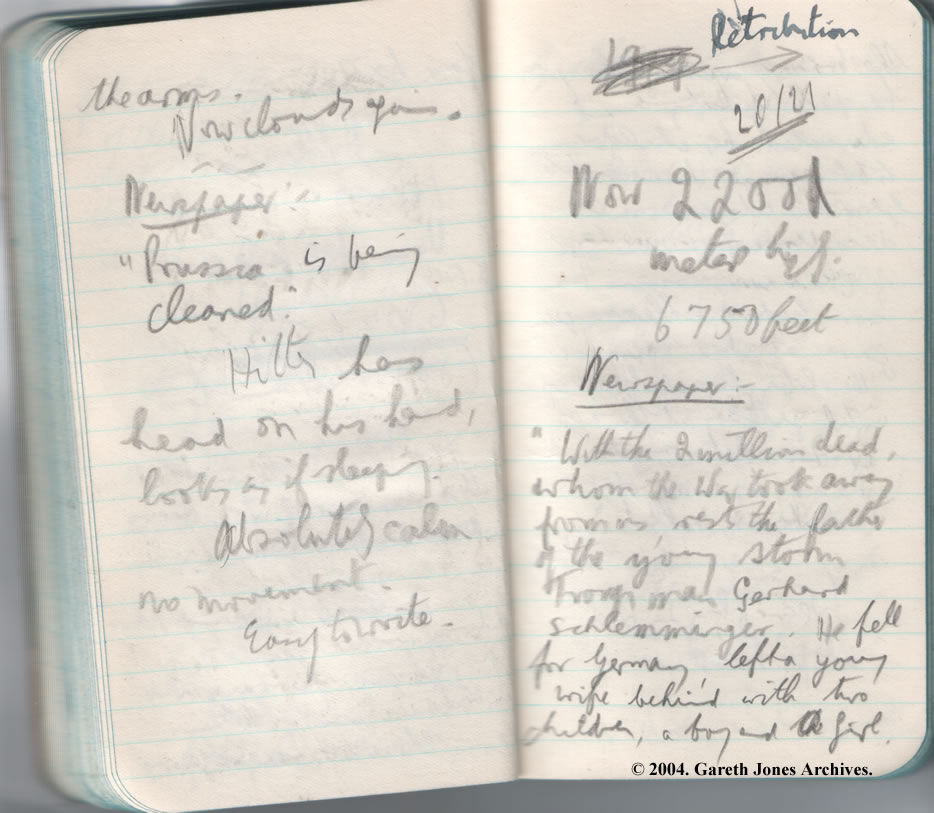 the arms.
Now clouds again.
Newspaper :-
"Prussia is being
cleaned."
Hitler has
head on his hand,
looks as if sleeping.
Absolutely calm
no movement.
Easy to write.
Retribution
20/21
Now 2200
meter high.
6750 feet
Newspaper :-
"With the 2 million dead,
whom the War took away
from us rest the father
of the young storm
troop man Gerhard
Schlemminger. He fell
for Germany left a young
wife behind with two
children, a boy and a girl.
© 2004. Gareth Jones Archives.